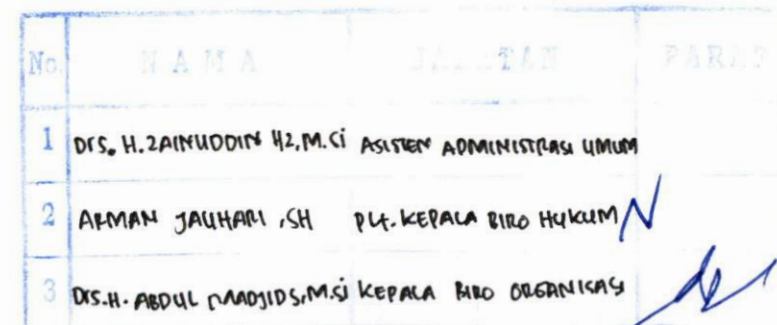 No. NAMA JABATAN PARAF
1 Drs. H. ZAINUDDIN HZ, M.Si ASISTEN ADMINISTRASI UMUM
2 ARMAN JAUHARI, SH Plt. KEPALA BIRO HUKUM
3 Drs. H. ABDUL MADJID S, M.Si KEPALA BIRO ORGANISASI